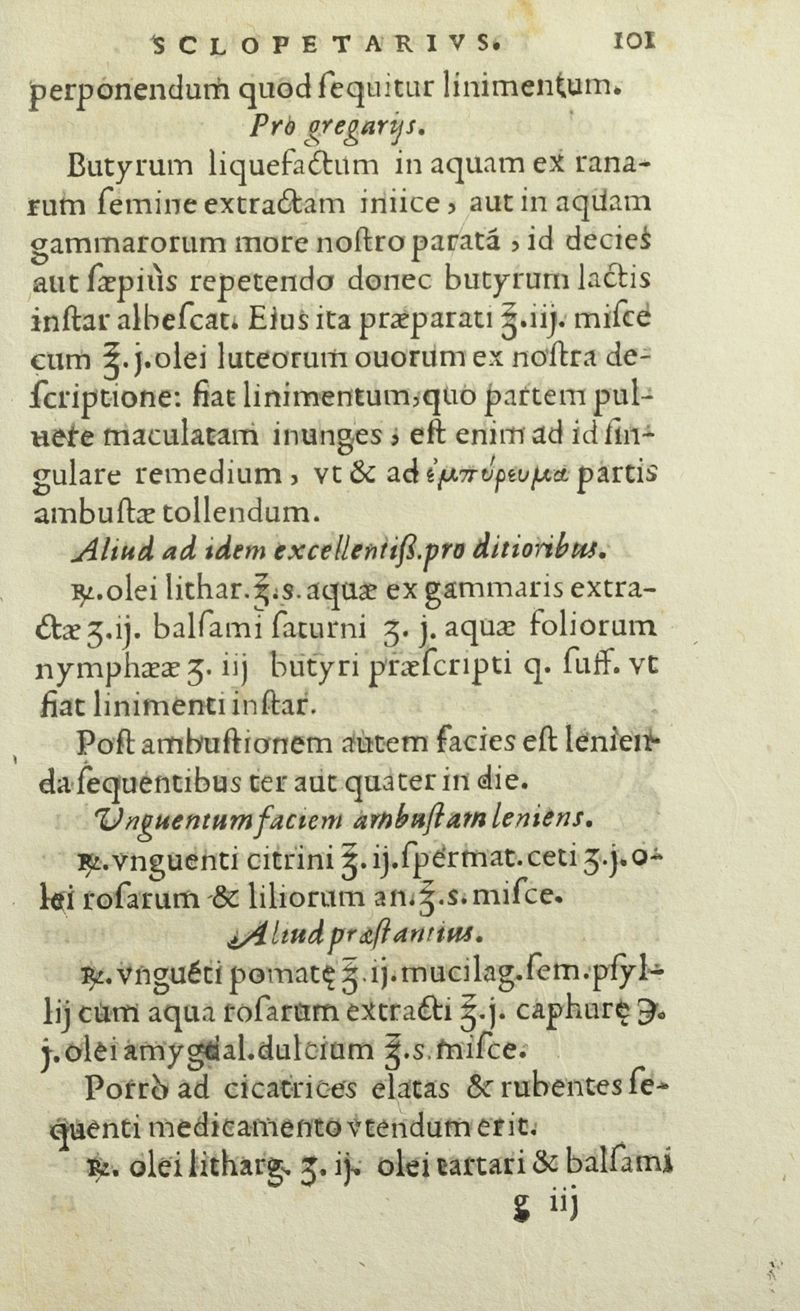 SCLOPETARIVS. 101
perponendum quod ſequitur linimentum.
Pro gregarijs.
Butyrum liquefactum in aquam ex rana-
rum ſemine extractam iniice, aut in aquam
gammarorum more noſtro paratá, id decies
aut ſæpiùs repetendo donec butyrum lactis
inſtar albeſcat. Eius ita præparati ℥.iij. miſce
cum ℥.j.olei luteorum ouorum ex noſtra de-
ſcriptione: fiat linimentum,quo partem pul-
uere maculatam inunges, eſt enim ad id ſin-
gulare remedium, vt & ad ἐμπύρευμα partis
ambuſtæ tollendum.
Aliud ad idem excellentiß.pro ditioribus.
℞.olei lithar.℥.s.aquæ ex gammaris extra-
ctæ ʒ.ij. balſami ſaturni ʒ. j. aquæ foliorum
nymphææ ʒ. iij butyri præſcripti q. ſuff. vt
fiat linimenti inſtar.
Poſt ambuſtionem autem facies eſt lenien-
da ſequentibus ter aut quater in die.
Vnguentum faciem ambuſtam leniens.
℞.vnguenti citrini ℥.ij.ſpermat.ceti ʒ.j.o-
lei roſarum & liliorum an.℥.s.miſce.
Aliud præſtantius.
℞.vnguẽti pomatę ℥.ij.mucilag.ſem.pſyl-
lij cùm aqua roſarum extracti ℥.j. caphurę ℈.
j.olei amygdal.dulcium ℥.s.miſce.
Porrò ad cicatrices elatas & rubentes ſe-
quenti medicamento vtendum erit.
℞. olei litharg. ʒ. ij. olei tartari & balſami
g iij